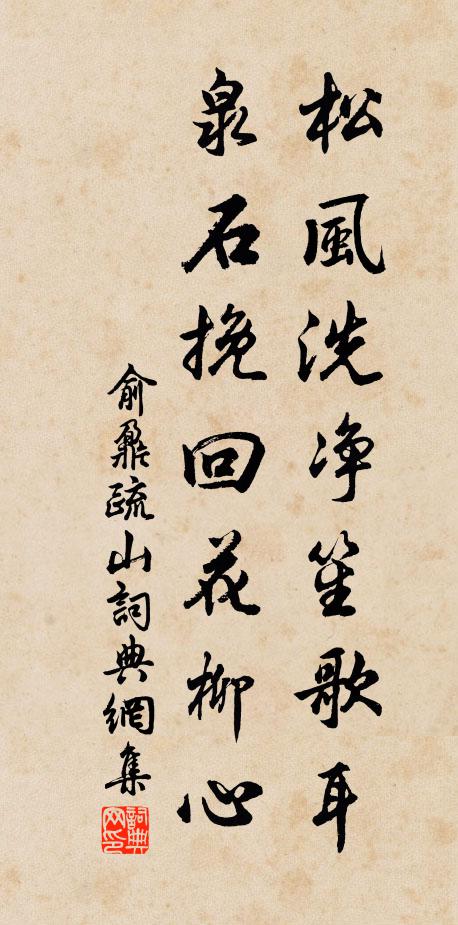 松風洗净笙歌耳
泉石挽回花柳心
俞鼐疏山詞典網集
詞典网印